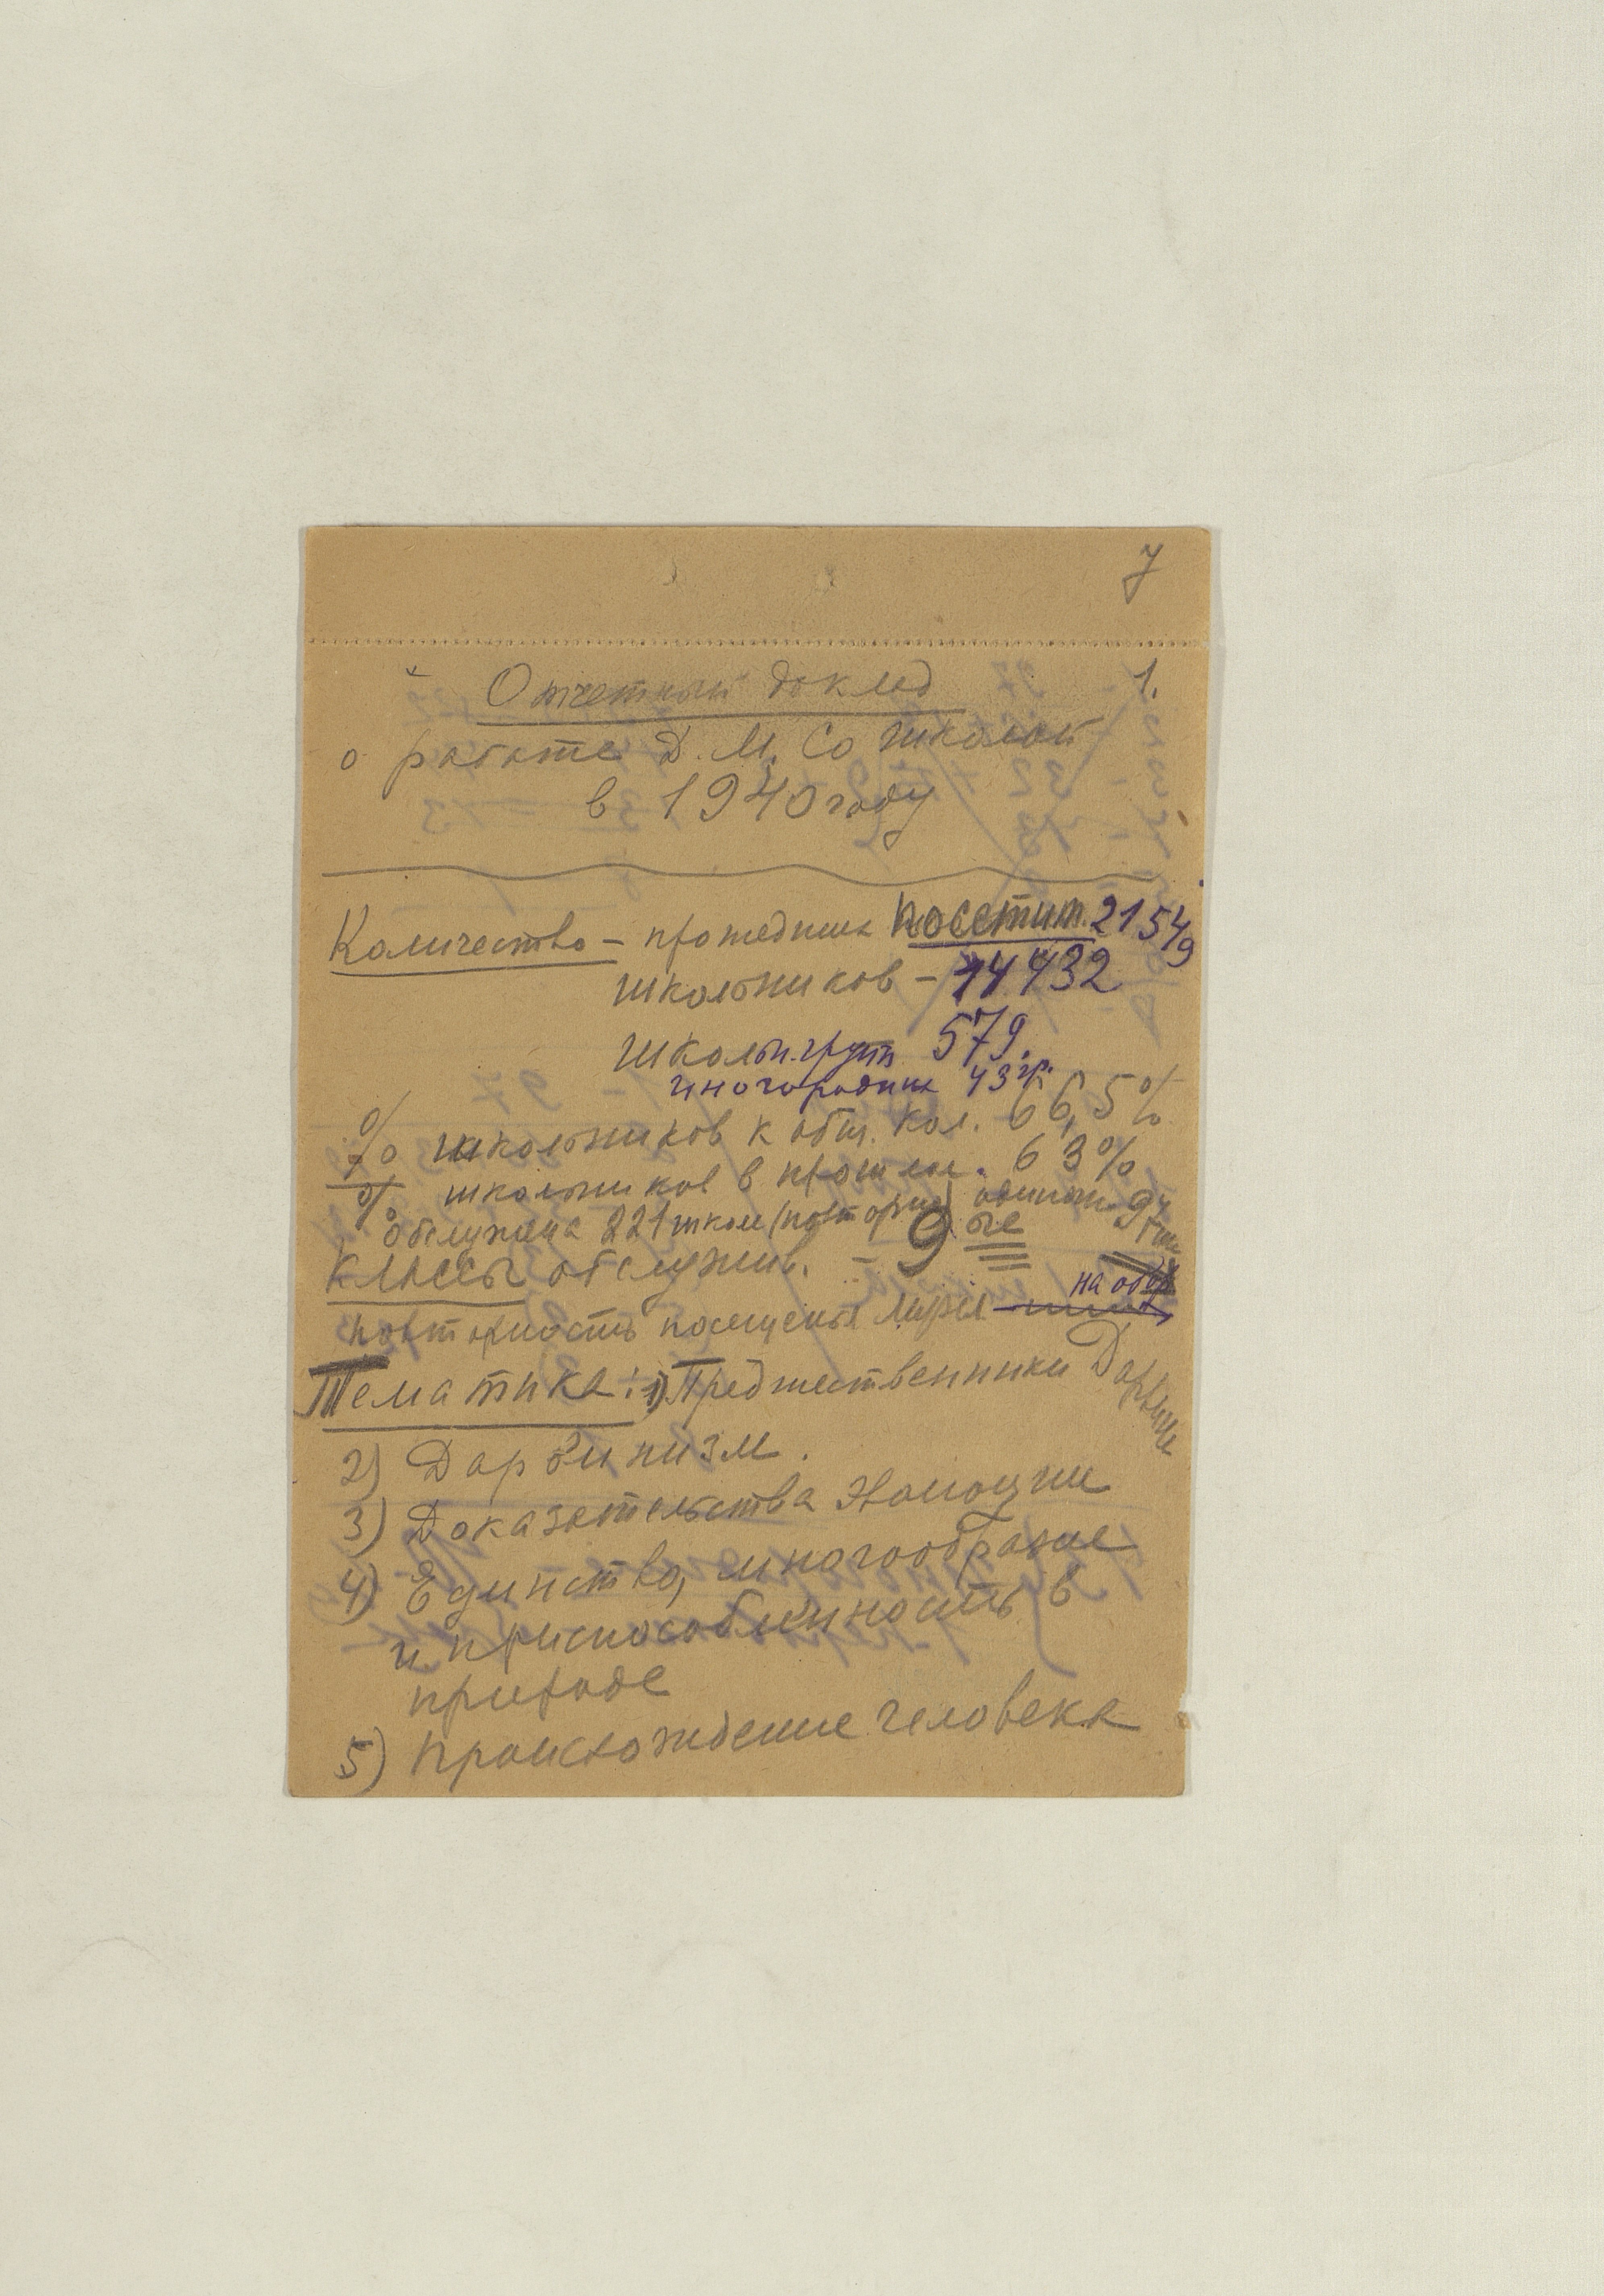 7
1.
Отчетный доклад
о работе Д. М. со школой
в 1940 году
Количество – прошедших посетит. 21549
школьников – 14432
школьн. групп 579.
иногородних 43 гр.
% школьников к общ. кол. 66,5%
% школьников в прошлом. 63%
обслужена 221 школ (повторно) 97
Классы обслужив. – 9 ые
на обор
повторность посещения
Тематика: 1) Предшественники Дарвина
2) Дарвинизм.
3) Доказательства Эволюции
4) Единство, многообразие
и приспособленность в
природе
5) Происхождение человека